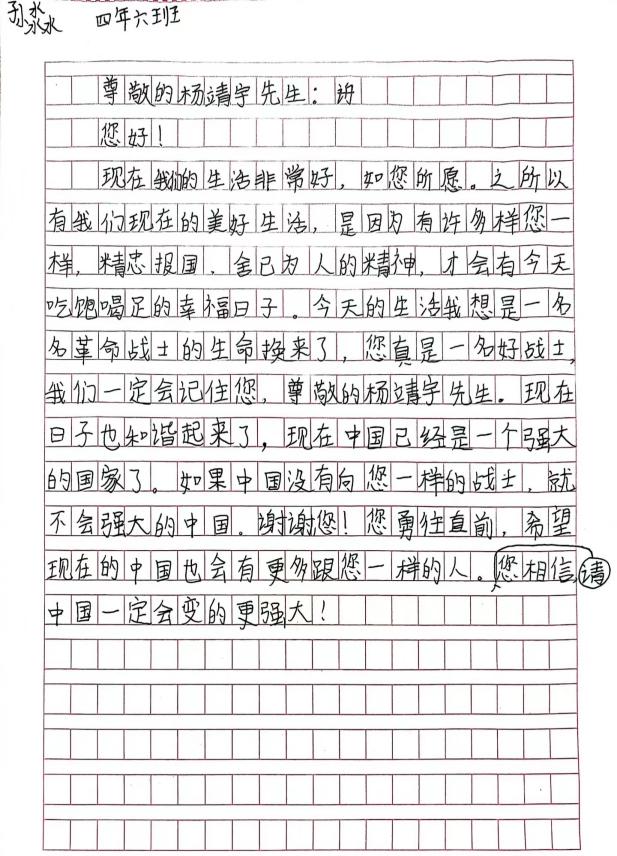 孙淼淼 四年六班
尊敬的杨靖宇先生：
您好！
现在我们的生活非常好，如您所愿。之所以
有我们现在的美好生活，是因为有许多样您一
样，精忠报国、舍己为人的精神，才会有今天
吃饱喝足的幸福日子。今天的生活我想是一名
名革命战士的生命换来了，您真是一名好战士，
我们一定会记住您，尊敬的杨靖宇先生。现在
日子也和谐起来了，现在中国已经是一个强大
的国家了。如果中国没有向您一样的战士，就
不会强大的中国。谢谢您！您勇往直前，希望
现在的中国也会有更多跟您一样的人。您相信请
中国一定会变的更强大！